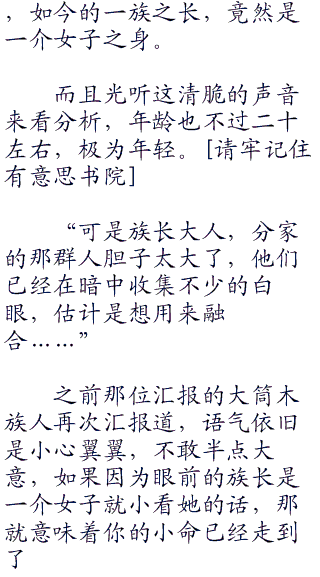 ，如今的一族之长，竟然是
一介女子之身。
而且光听这清脆的声音
来看分析，年龄也不过二十
左右，极为年轻。[请牢记住
有意思书院]
“可是族长大人，分家
的那群人胆子太大了，他们
已经在暗中收集不少的白
眼，估计是想用来融
合……”
之前那位汇报的大筒木
族人再次汇报道，语气依旧
是小心翼翼，不敢半点大
意，如果因为眼前的族长是
一介女子就小看她的话，那
就意味着你的小命已经走到
了